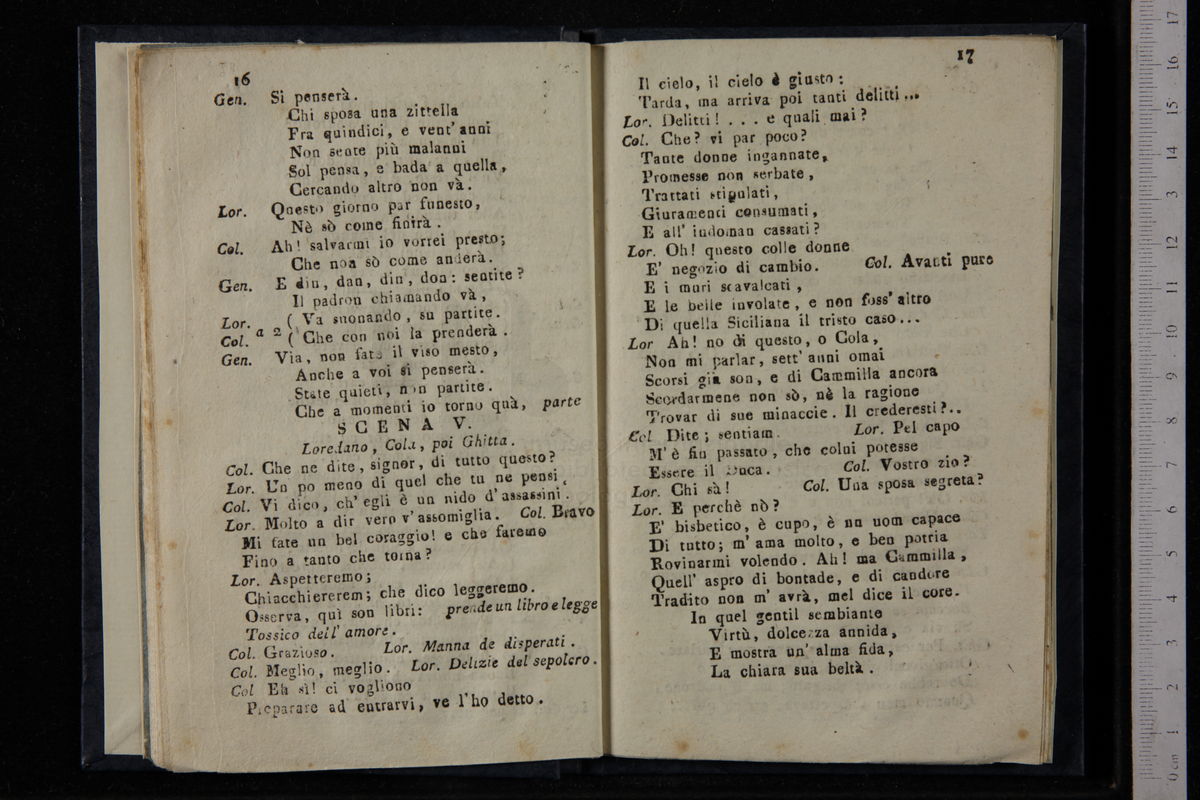 16
Gen. Si penserà.
Chi sposa una zittella
Fra quindici, e vent' anni
Non sente più malanni
Sol pensa, e bada a quella,
Cercando altro non và.
Lor. Questo giorno par funesto,
Nè sò come finirà.
Col. Ah! salvarmi io vorrei presto;
Che non sò come anderà.
Gen. E din, dan, din, don: sentite?
Il padron chiamando và,
Lor. ( Va suonando, su partite.
Col. a 2 ( Che con noi la prenderà.
Gen. Via, non fate il viso mesto,
Anche a voi si penserà.
State quieti, non partite.
Che a momenti io torno quà, parte
SCENA V.
Loredano, Cola, poi Ghitta.
Col. Che ne dite, signor, di tutto questo?
Lor. Un po meno di quel che tu ne pensi.
Col. Vi dico, ch' egli è un nido d' assassini.
Lor. Molto a dir vero v' assomiglia. Col. Bravo
Mi fate un bel coraggio! e che faremo
Fino a tanto che torna?
Lor. Aspetteremo;
Chiacchiererem; che dico leggeremo.
Osserva, quì son libri: prende un libro e legge
Tossico dell' amore.
Col. Grazioso. Lor. Manna de disperati.
Col. Meglio, meglio. Lor. Delizie del sepolcro.
Col Eh sì! ci vogliono
Preparare ad entrarvi, ve l'ho detto.
17
Il cielo, il cielo è giusto:
Tarda, ma arriva poi tanti delitti...
Lor. Delitti! . . . e quali mai?
Col. Che? vi par poco?
Tante donne ingannate,
Promesse non serbate,
Trattati stipulati,
Giuramenti consumati,
E all' indoman cassati?
Lor. Oh! questo colle donne
E' negozio di cambio. Col. Avanti pure
E i muri scavalcati,
E le belle involate, e non foss' altro
Di quella Siciliana il tristo caso...
Lor Ah! no di questo, o Cola,
Non mi parlar, sett' anni omai
Scorsi già son, e di Cammilla ancora
Scordarmene non sò, nè la ragione
Trovar di sue minaccie. Il crederesti?..
Col Dite; sentiam. Lor. Pel capo
M' è fin passato, che colui potesse
Essere il Duca. Col. Vostro zio?
Lor. Chi sà! Col. Una sposa segreta?
Lor. E perchè nò?
E' bisbetico, è cupo, è un uom capace
Di tutto; m' ama molto, e ben potria
Rovinarmi volendo. Ah! ma Cammilla,
Quell' aspro di bontade, e di candore
Tradito non m' avrà, mel dice il core.
In quel gentil sembiante
Virtù, dolcezza annida,
E mostra un' alma fida,
La chiara sua beltà.
0 cm 1 2 3 4 5 6 7 8 9 10 11 12 13 14 15 16 17